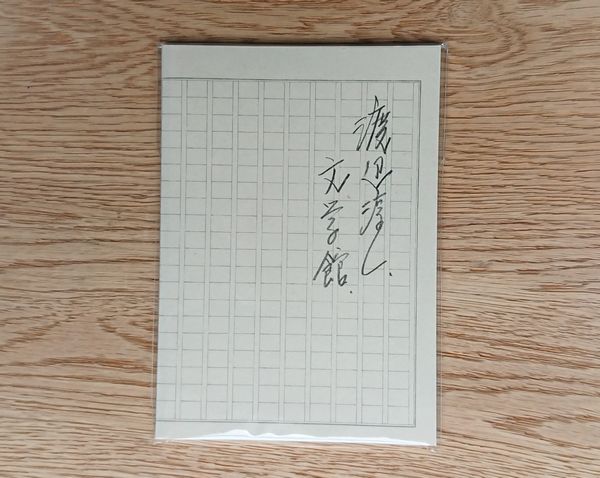 渡辺淳一
文学館